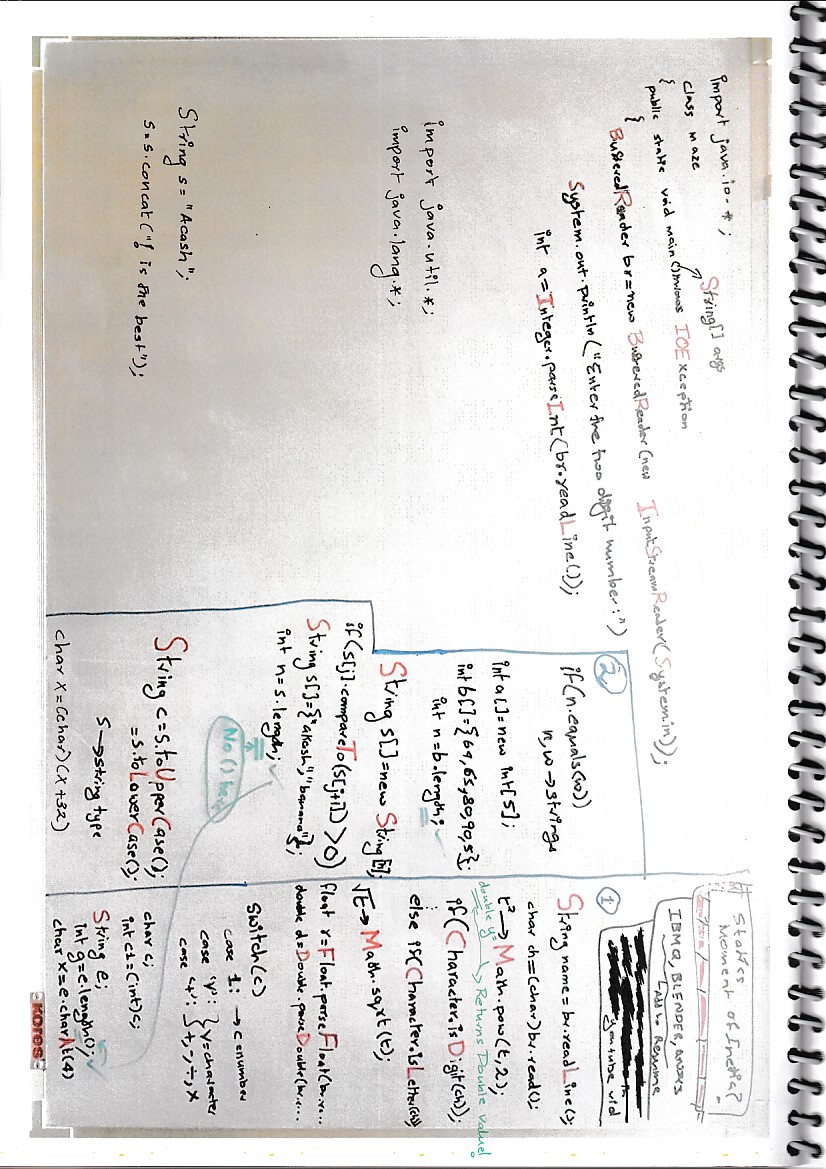 import java.io.*;
class maze
{ public static void main() throws IOException
String[] args
{
BufferedReader br=new BufferedReader(new InputStreamReader(System.in));
System.out.println("Enter the two digit number:")
int a=Integer.parseInt(br.readLine());
import java.util.*;
import java.lang.*;
String s="Acash";
s=s.concat(" is the best");
2
if(n.equals(w))
n,w→strings
int a[]=new int[5];
int b[]={69,65,80,90,5};
int n=b.length;
String s[]=new String[n];
if(s[j].compareTo(s[j+1])>0)
String s[]={"akash","banana"};
int n=s.length;
No () here
String c=s.toUpperCase();
=s.toLowerCase();
s→string type
char x=(char)(x+32)
Statics
Moment of Inertia?
IBMQ, BLENDER, ANSYS
Add to Resume
youtube vid
1
String name=br.readLine();
char ch=(char)br.read();
t²→Math.pow(t,2);
double y=
Returns Double value!
if(Character.isDigit(ch));
else if(Character.isLetter(ch))
√t→Math.sqrt(t);
float r=Float.parseFloat(br.r...
double d=Double.parseDouble(br....
Switch(c)
case 1: →c=number
case 'y': } y=character
case '+': } +,-,÷,x
char c;
int c1=(int)c;
String e;
int g=e.length();
char x=e.charAt(4)
kores